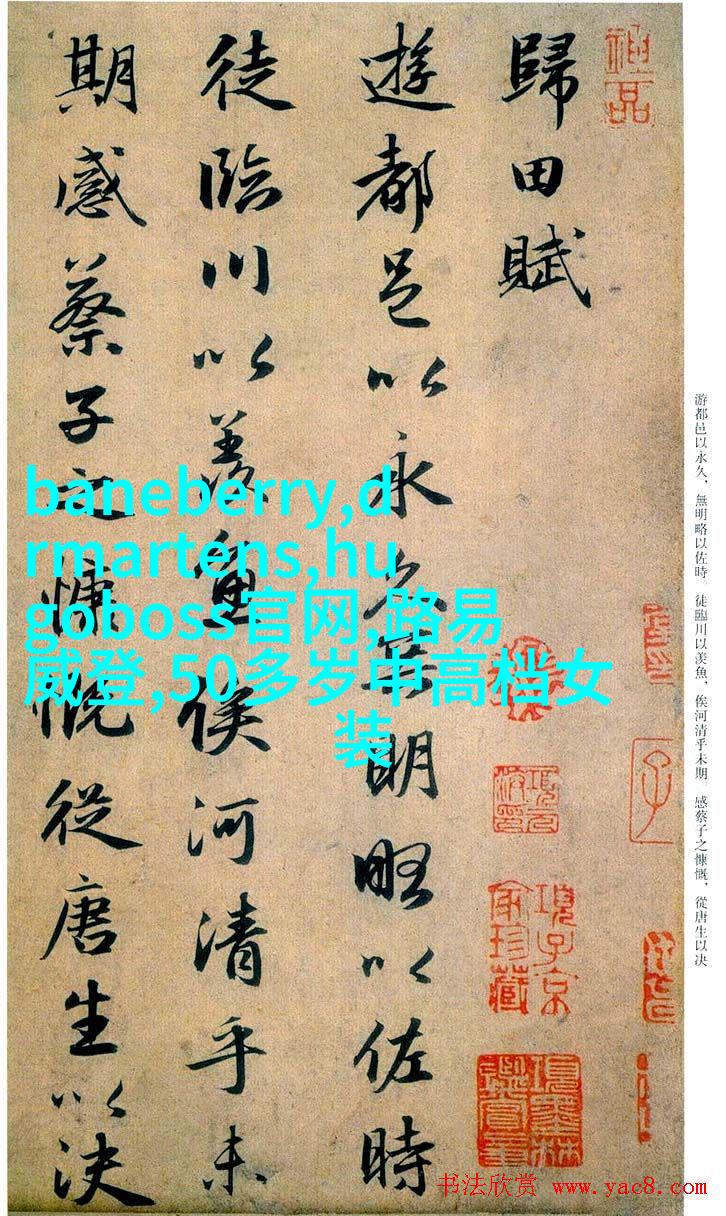 神品
歸田賦
遊都邑以永久無明略以佐時
徒臨川以羨魚俟河清乎未
期感蔡子之慷慨從唐生以決
baneberry,d
rmartens,hu
goboss官网,路易
威登,50多岁中高档女
装
游都邑以永久，無明略以佐時。徒臨川以羨魚，俟河清乎未期。感蔡子之慷慨，從唐生以决
項子京
家珍藏
項墨林
鑑賞章
书法欣赏 www.yac8.com